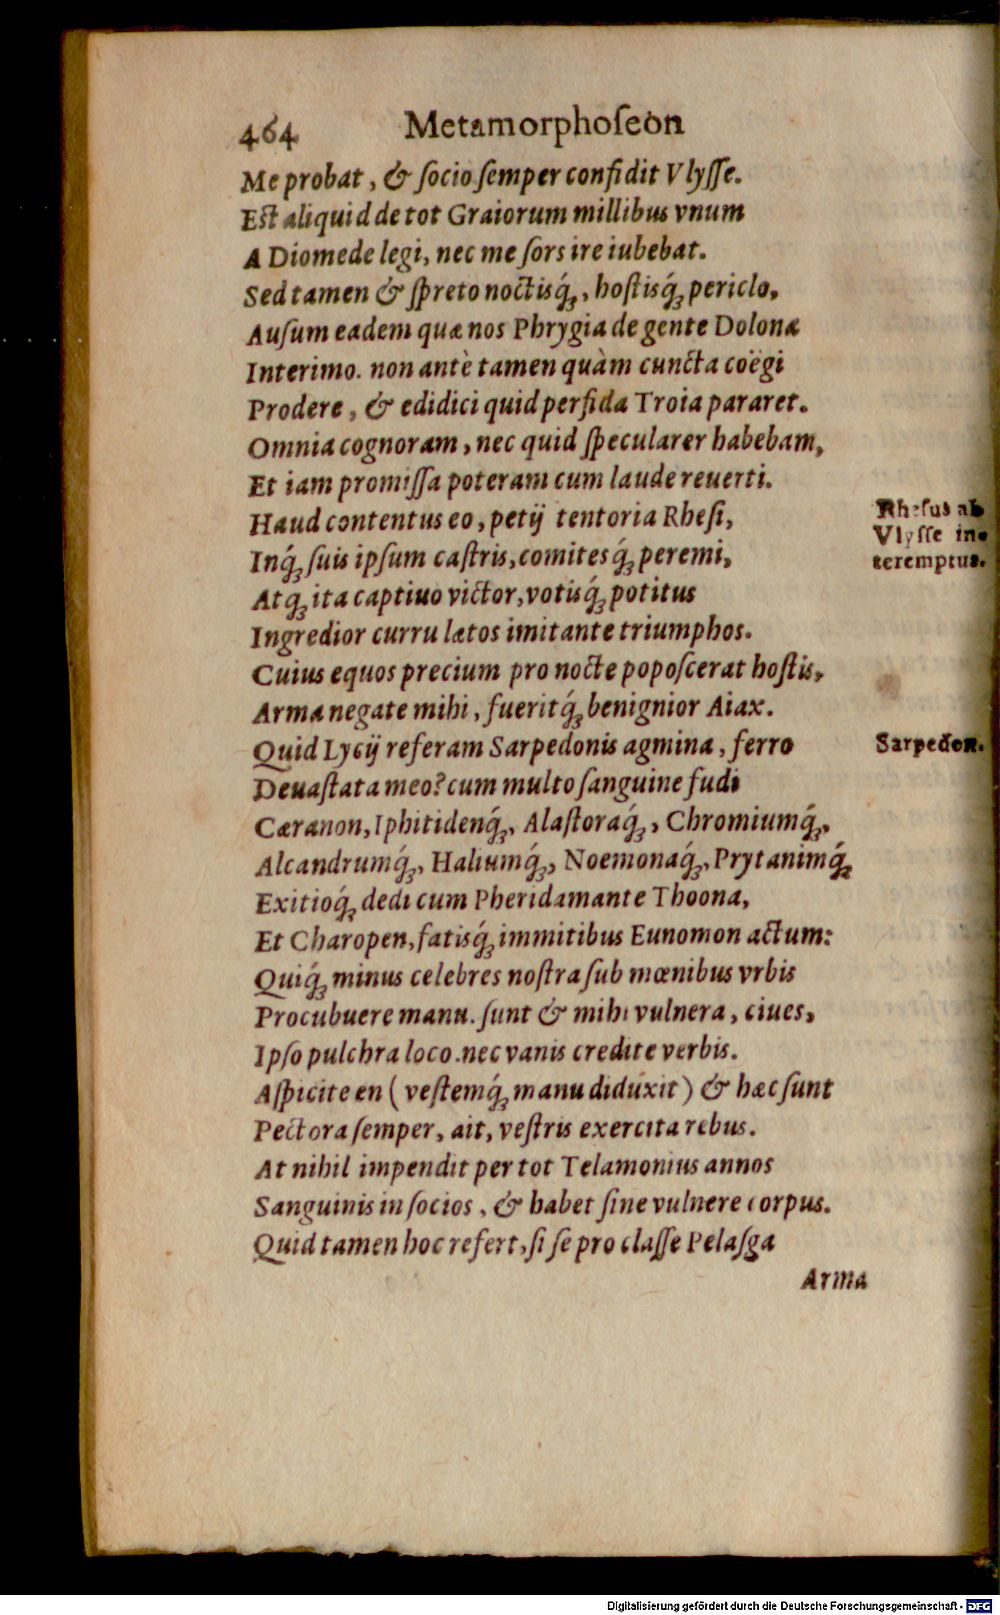 464 Metamorphoſeòn
Me probat, & ſocio ſemper confidit Vlyſſe.
Est aliquid de tot Graiorum millibus vnum
A Diomede legi, nec me ſors ire iubebat.
Sed tamen & ſpreto noctisq́ꝫ, hoſtisq́ꝫ periclo,
Auſum eadem quæ nos Phrygia de gente Dolona
Interimo. non antè tamen quàm cuncta coëgi
Prodere, & edidici quid perfida Troia pararet.
Omnia cognoram, nec quid ſpecularer habebam,
Et iam promiſſa poteram cum laude reuerti.
Haud contentus eo, petij tentoria Rheſi,
Inq́ꝫ ſuis ipſum caſtris, comitesq́ꝫ peremi,
Atqꝫ ita captiuo victor, votisq́ꝫ potitus
Ingredior curru lætos imitante triumphos.
Cuius equos precium pro nocte popoſcerat hoſtis,
Arma negate mihi, fueritq́ꝫ benignior Aiax.
Quid Lycij referam Sarpedonis agmina, ferro
Deuaſtata meo? cum multo ſanguine fudi
Cæranon, Iphitidenq́ꝫ, Alaſtoraq́ꝫ, Chromiumq́ꝫ,
Alcandrumq́ꝫ, Haliumq́ꝫ, Noemonaq́ꝫ, Prytanimq́ꝫ
Exitioq́ꝫ dedi cum Pheridamante Thoona,
Et Charopen, fatisq́ꝫ immitibus Eunomon actum:
Quiq́ꝫ minus celebres noſtra ſub mœnibus vrbis
Procubuere manu. ſunt & mihi vulnera, ciues,
Ipſo pulchra loco. nec vanis credite verbis.
Aſpicite en (veſtemq́ꝫ manu diduxit) & hæc ſunt
Pectora ſemper, ait, veſtris exercita rebus.
At nihil impendit per tot Telamonius annos
Sanguinis in ſocios, & habet ſine vulnere corpus.
Quid tamen hoc refert, ſi ſe pro claſſe Pelaſga
Arma
Rheſus ab
Vlyſſe in-
teremptus.
Sarpedon.
Digitalisierung gefördert durch die Deutsche Forschungsgemeinschaft - DFG